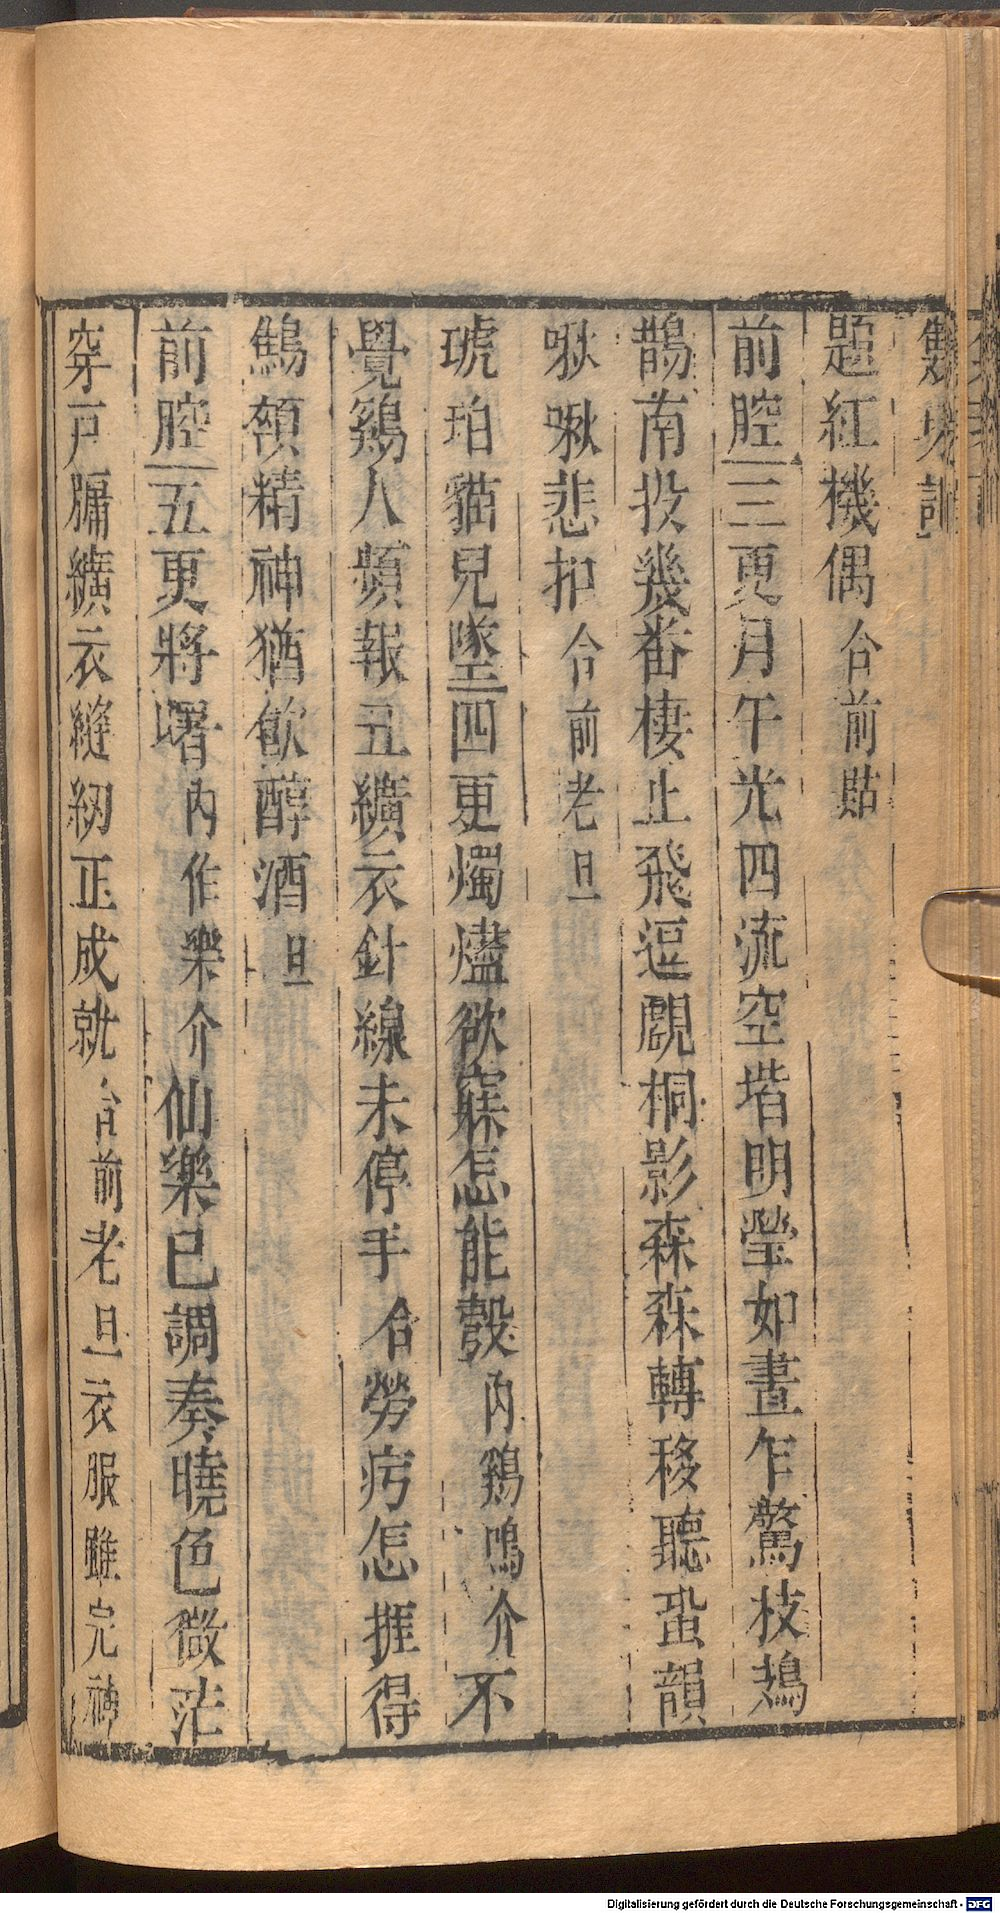 題紅機偶合前貼
前腔三更月午光四流空堦明瑩如晝乍驚枝鵲
鵲南投幾番棲止飛逗覷桐影森森轉移聽蛩韻
啾啾悲扣合前老旦
琥珀貓兒墜四更燭燼欲寐怎能彀內鷄鳴介不
覺鷄人頻報丑纊衣針線未停手合勞疞怎捱得
鷦頠精神猶飲醇酒旦
前腔五更將曙內作樂介仙樂已調奏曉色微茫
穿戶牖纊衣縫紉正成就合前老旦衣服雖完神
Digitalisierung gefördert durch die Deutsche Forschungsgemeinschaft - DFG